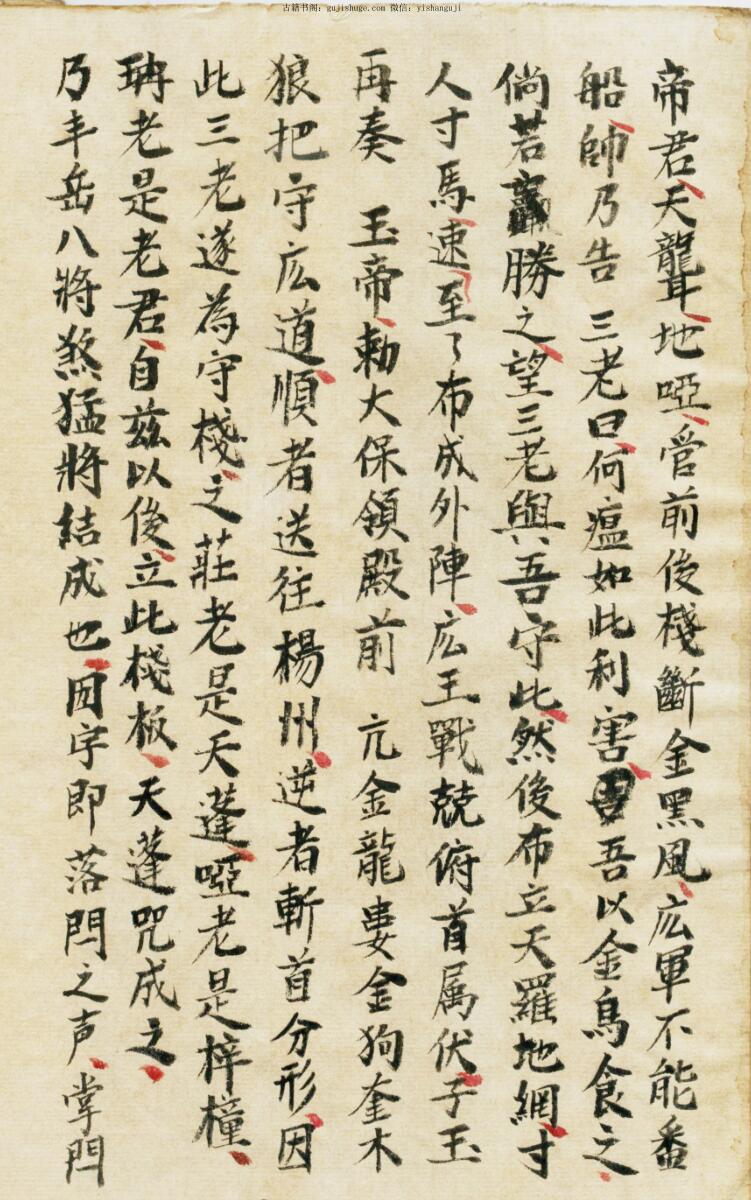 古籍书阁：gujishuge.com 微信：yishanguji
帝君、天龍耳、地啞、營前後棧斷金黑風、広軍不能番
船、帥乃告 三老曰、何瘟如此利害、吾以金烏食之、
倘若贏勝之、望三老與吾守此、然後布立天羅地網、寸
人寸馬、速至了布成外陣、広王戰兢俯首属伏、子玉
再奏 玉帝、勅大保領殿前 亢金龍婁金狗奎木
狼把守広道、順者送往楊州、逆者斬首分形、因
此三老遂為守棧、之莊老是天蓬、啞老是梓橦、
聃老是老君、自兹以後、立此棧板、天蓬咒成之、
乃丰岳八將煞猛將結成也、因字即落閂之声、掌閂